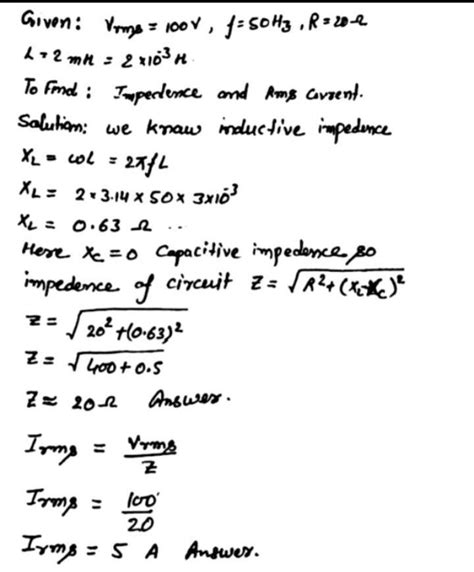 Given: Vrms = 100V, f = 50Hz, R = 20 Ω
L = 2 mH = 2 × 10⁻³ H
To Find: Impedence and Rms Current.
Solution: we know inductive impedence
X_L = ωL = 2πfL
X_L = 2 × 3.14 × 50 × 3×10⁻³
X_L = 0.63 Ω ..
Here X_C = 0 Capacitive impedence, so
impedence of circuit Z = √R² + (X_L - X_C)²
Z = √20² + (0.63)²
Z = √400 + 0.5
Z ≈ 20 Ω Answer.
Irms = Vrms / Z
Irms = 100 / 20
Irms = 5 A Answer.